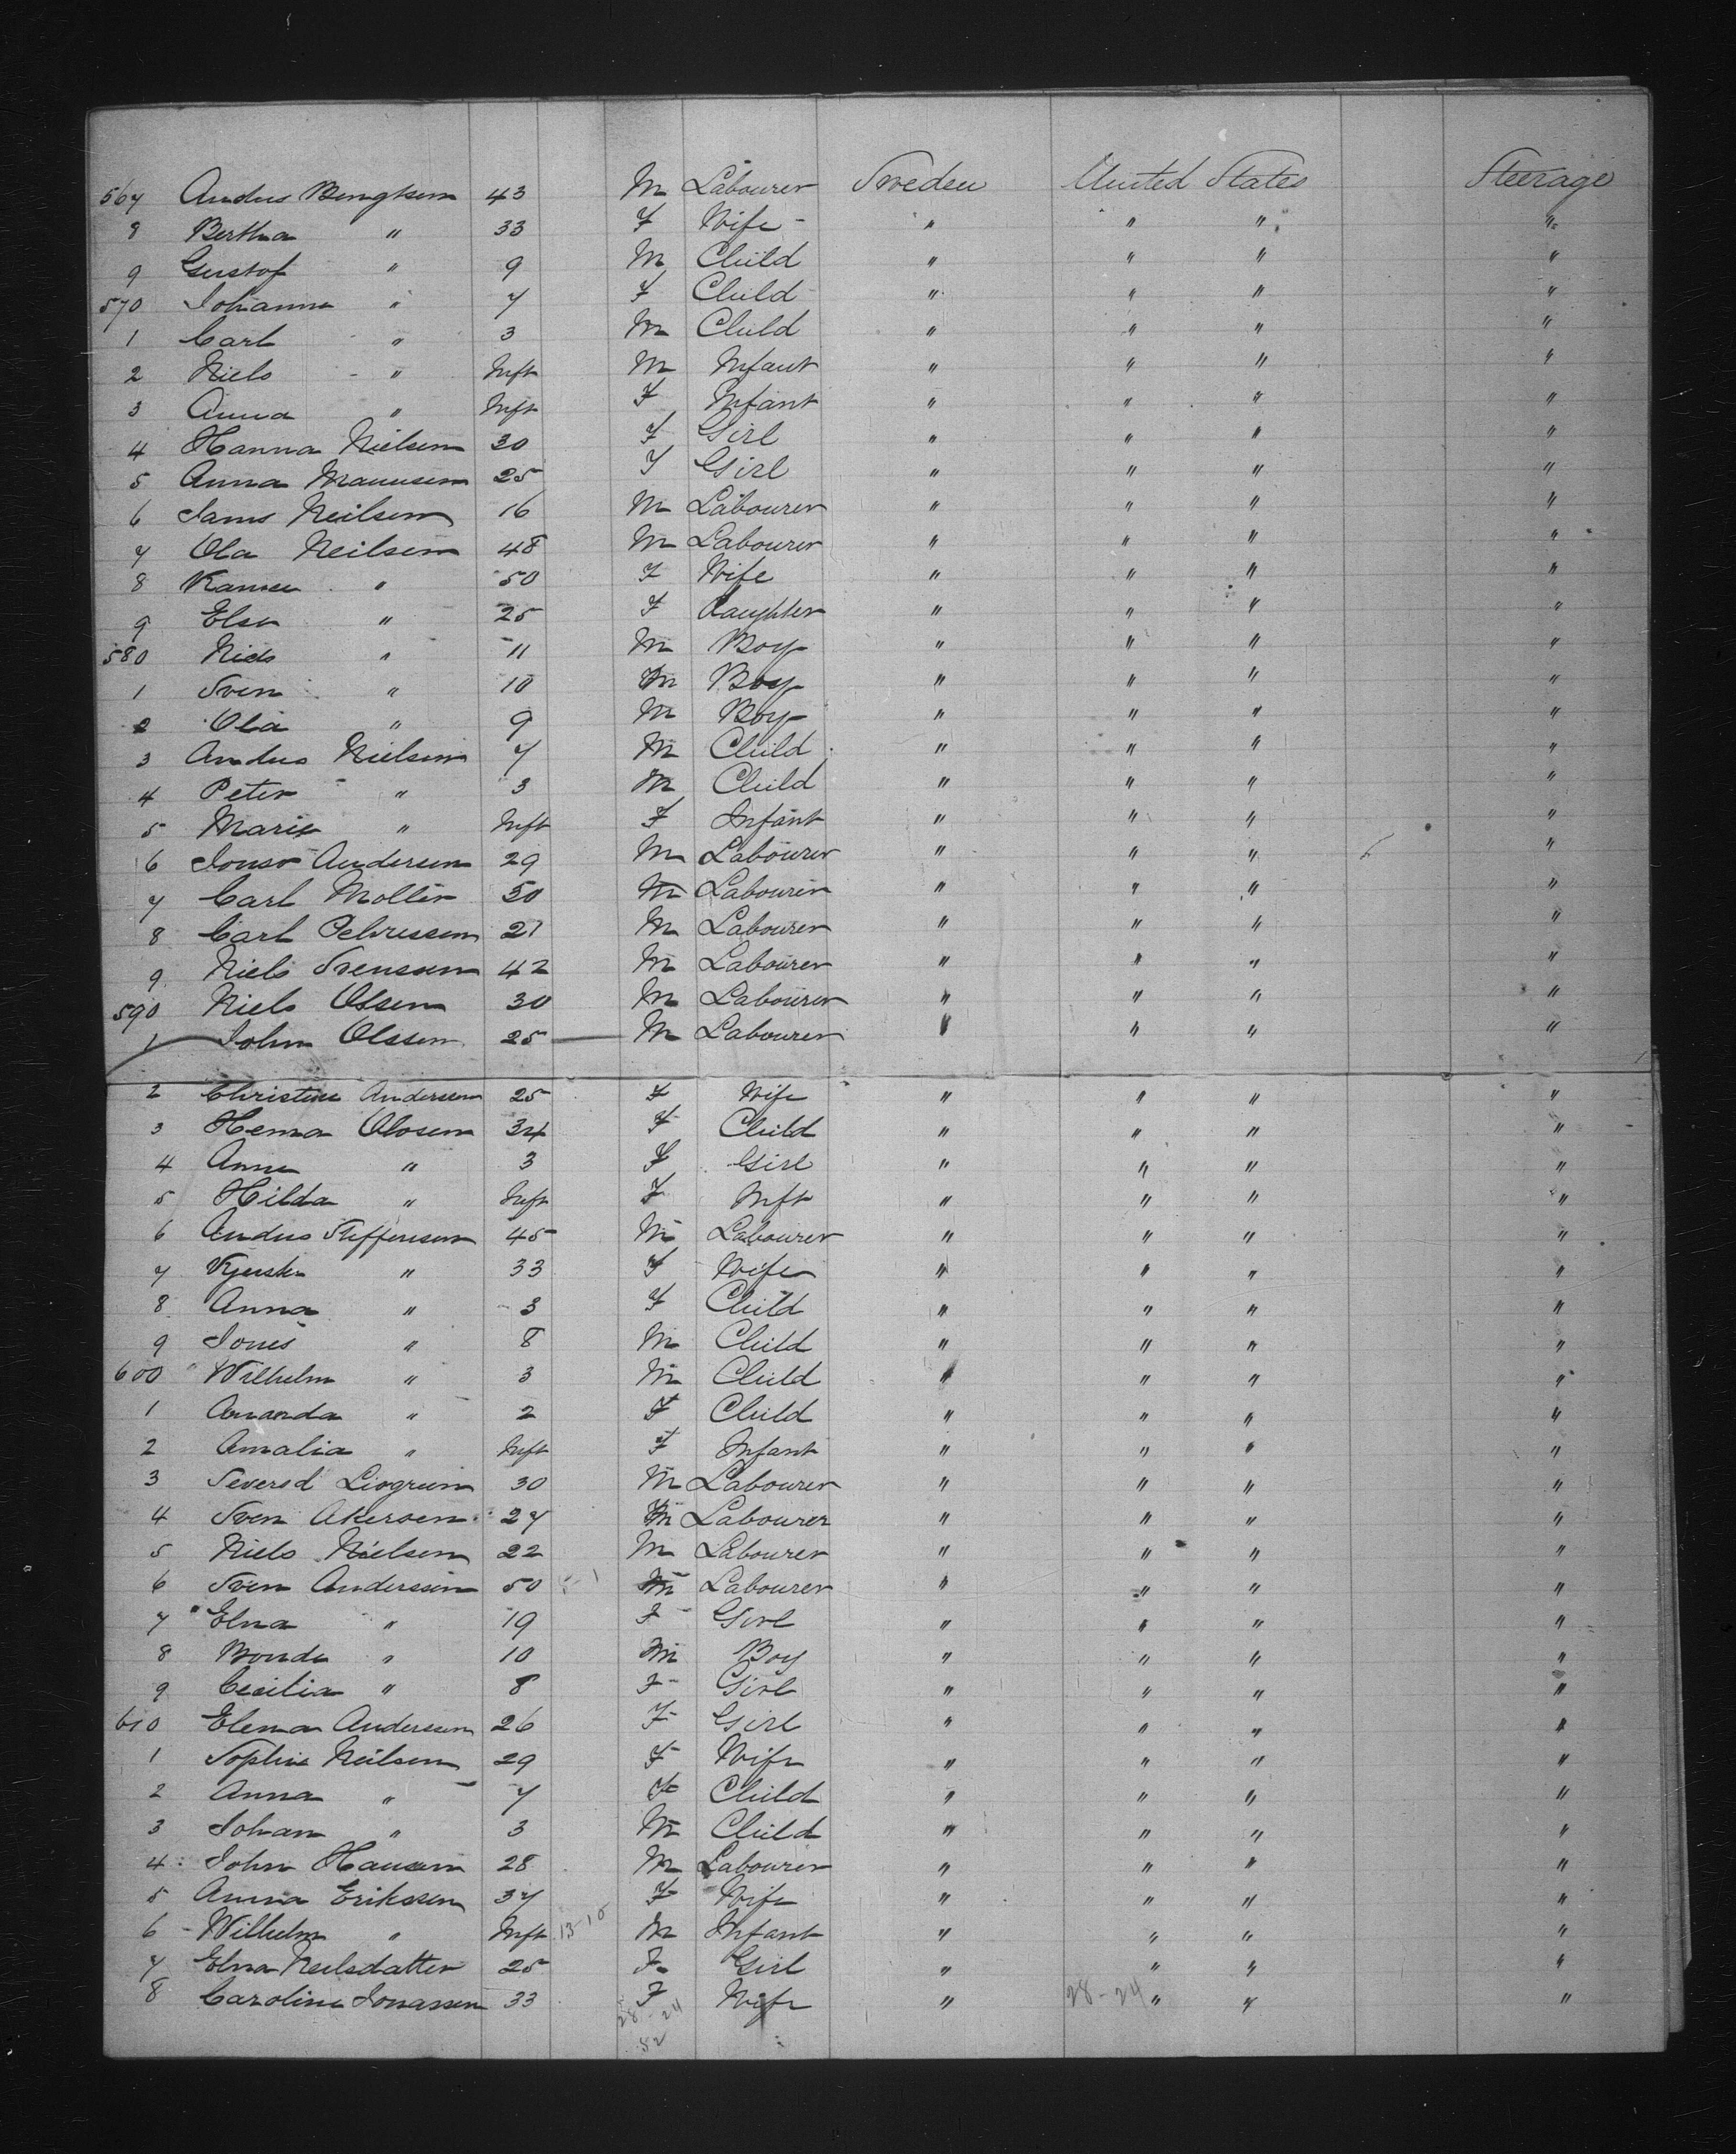 567 Andus Bengtsen 43 M Labourer Sweden United States Steerage
8 Bertha " 33 F Wife " " " "
9 Gustof " 9 M Child " " " "
570 Johanna " 7 F Child " " " "
1 Carl " 3 M Child " " " "
2 Niels " Inft M Infant " " " "
3 Anna " Inft F Infant " " " "
4 Hanna Nielsen 30 F Girl " " " "
5 Anna 25 F Girl " " " "
6 Neilsen 16 M Labourer " " " "
7 Ola Neilsen 48 M Labourer " " " "
8 " 50 F Wife " " " "
9 Elsa " 25 F Daughter " " " "
580 Niels " 11 M Boy " " " "
1 Sven " 10 M Boy " " " "
2 Ola " 9 M Boy " " " "
3 Andus Nielsen 7 M Child " " " "
4 Peter " 3 M Child " " " "
5 Marie " Inft F Infant " " " "
6 Andersen 29 M Labourer " " " "
7 Carl Moller 50 M Labourer " " " "
8 Carl 21 M Labourer " " " "
9 Niels Svenssen 42 M Labourer " " " "
590 Niels Olsen 30 M Labourer " " " "
1 John Olssen 25 M Labourer " " " "
2 Christine Anderssen 25 F Wife " " " "
3 Olosen 34 F Child " " " "
4 Anna " 3 F Girl " " " "
5 Hilda " Inft F Inft " " " "
6 Andus Steffensen 45 M Labourer " " " "
7 " 33 F Wife " " " "
8 Anna " 3 F Child " " " "
9 Jones " 8 M Child " " " "
600 Wilhelm " 3 M Child " " " "
1 Amanda " 2 F Child " " " "
2 Amalia " Inft F Infant " " " "
3 30 M Labourer " " " "
4 Sven Akersen 27 M Labourer " " " "
5 Niels Nielsen 22 M Labourer " " " "
6 Sven Anderssen 50 M Labourer " " " "
7 Elna " 19 F Girl " " " "
8 " 10 M Boy " " " "
9 Cecilia " 8 F Girl " " " "
610 Elema Anderssen 26 F Girl " " " "
1 Sophie Neilsen 29 F Wife " " " "
2 Anna " 7 F Child " " " "
3 Johan " 3 M Child " " " "
4 John Hansen 28 M Labourer " " " "
5 Anna Erikssen 37 F Wife " " " "
6 Wilhelm " Inft 13-10 M Infant " " " "
7 Elna Neilsdatter 25 F Girl " " " "
8 Caroline Jonassen 33 F Wife " " " "
28-24 28-24
52